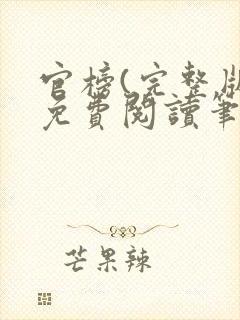 官榜(完整版
免費閱讀筆
芒果辣